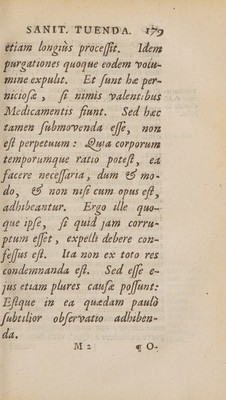 SANIT. TUENDA. 179
etiam longiùs processit. Idem
purgationes quoque eodem volu-
mine expulit. Et sunt hæ per-
niciosæ, si nimis valentibus
Medicamentis fiunt. Sed hæc
tamen submovenda esse, non
est perpetuum: Quia corporum
temporumque ratio potest, ea
facere necessaria, dum & mo-
do, & non nisi cum opus est,
adhibeantur. Ergo ille quo-
que ipse, si quid jam corru-
ptum esset, expelli debere con-
fessus est. Ita non ex toto res
condemnanda est. Sed esse e-
jus etiam plures causæ possunt:
Estque in ea quædam paulò
subtilior observatio adhiben-
da.
M 2 ¶ O-